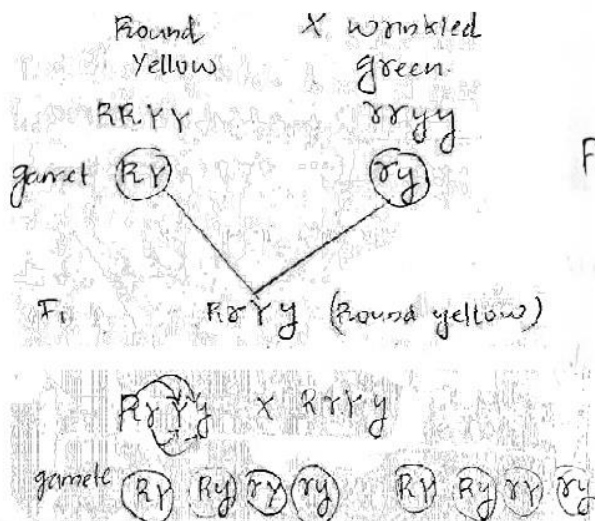 Round X wrinkled
Yellow green
RRYY rryy
gamet RY ry
F
F1 RrYy (Round yellow)
RrYy X RrYy
gamete RY Ry rY ry RY Ry rY ry